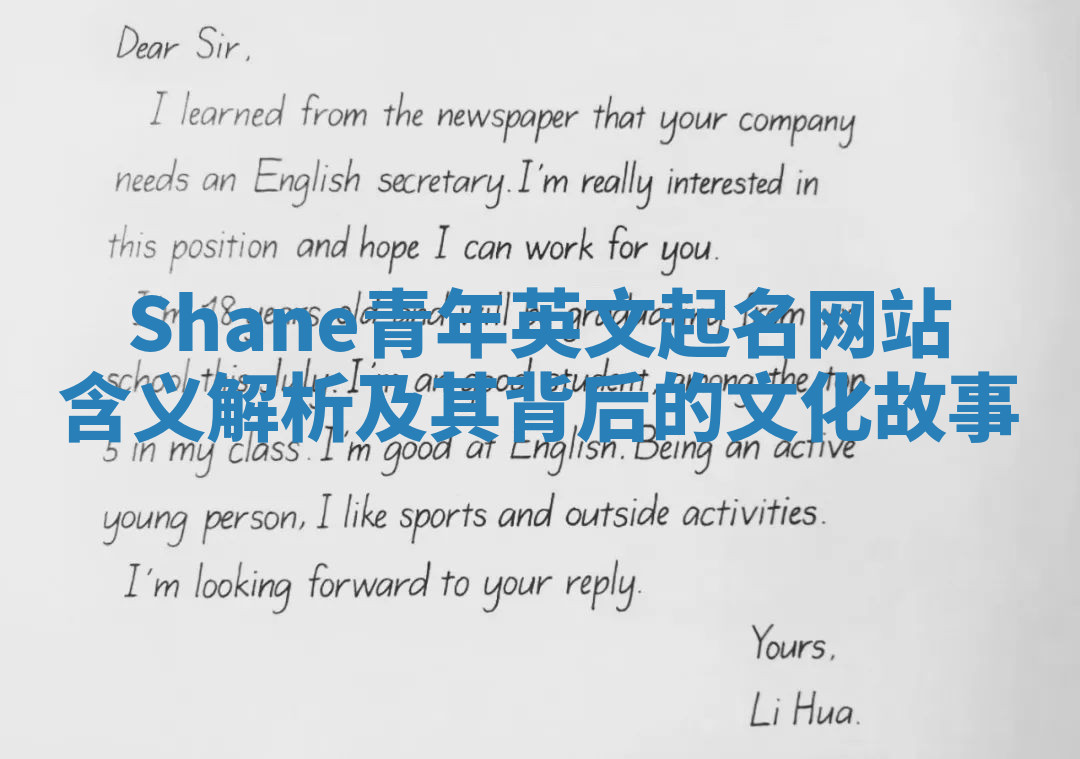 Dear Sir,
I learned from the newspaper that your company
needs an English secretary. I'm really interested in
this position and hope I can work for you.
I'm 18 years old and will be graduating from
Shane青年英文起名网站
school this July. I'm an good student, among the top
含义解析及其背后的文化故事
5 in my class. I'm good at English. Being an active
young person, I like sports and outside activities.
I'm looking forward to your reply.
Yours,
Li Hua.